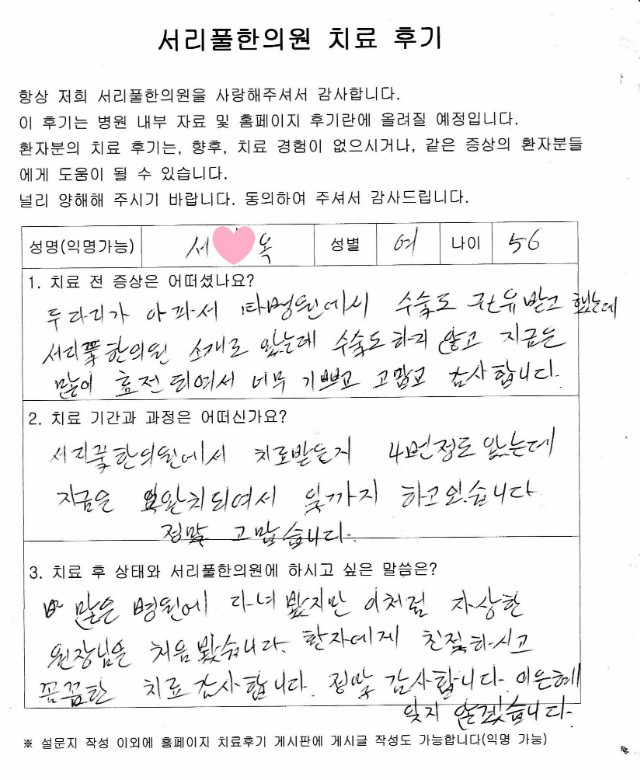 서리풀한의원 치료 후기
항상 저희 서리풀한의원을 사랑해주셔서 감사합니다.
이 후기는 병원 내부 자료 및 홈페이지 후기란에 올려질 예정입니다.
환자분의 치료 후기는, 향후, 치료 경험이 없으시거나, 같은 증상의 환자분들
에게 도움이 될 수 있습니다.
널리 양해해 주시기 바랍니다. 동의하여 주셔서 감사드립니다.
성명(익명가능) 서 옥 성별 여 나이 56
1. 치료 전 증상은 어떠셨나요?
두다리가 아파서 타병원에서 수술도 권유받고 했는데
서리풀한의원 소개로 왔는데 수술도하지 않고 지금은
많이 호전되여서 너무 기쁘고 고맙고 감사합니다.
2. 치료 기간과 과정은 어떠신가요?
서리풀한의원에서 치료받은지 4번정도 왔는데
지금은 완치되여서 일까지 하고있습니다
정말 고맙습니다.
3. 치료 후 상태와 서리풀한의원에 하시고 싶은 말씀은?
많은 병원에 다녀 봤지만 이처럼 자상한
원장님은 처음봤습니다. 환자에게 친절하시고
꼼꼼한 치료 감사합니다. 정말 감사합니다. 이은혜
잊지 않겠습니다.
※ 설문지 작성 이외에 홈페이지 치료후기 게시판에 게시글 작성도 가능합니다(익명 가능)